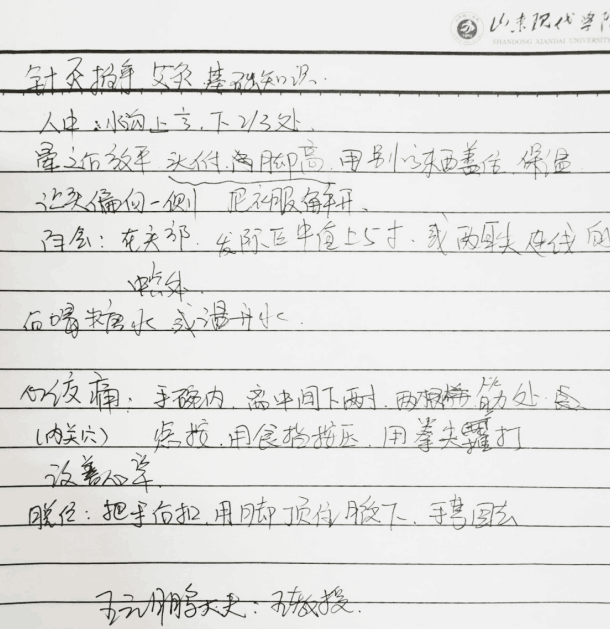 山东现代学院
SHANDONG XIANDAI UNIVERSITY
针灸推拿 艾灸 基础知识.
人中:水沟上 下2/3处.
晕之后放平 头低,两脚高,用别的东西盖住 保温
让头偏向一侧 把衣服解开.
百会:在头部.发际正中直上5寸,或两耳尖连线的
中点处.
喝糖水或温开水.
心绞痛:手腕内,离中间下两寸,两筋处
(内关穴) 点按,用食指按压,用拳头打
改善心
脱位:把手扣,用脚顶住腋下,手
大夫:教授.